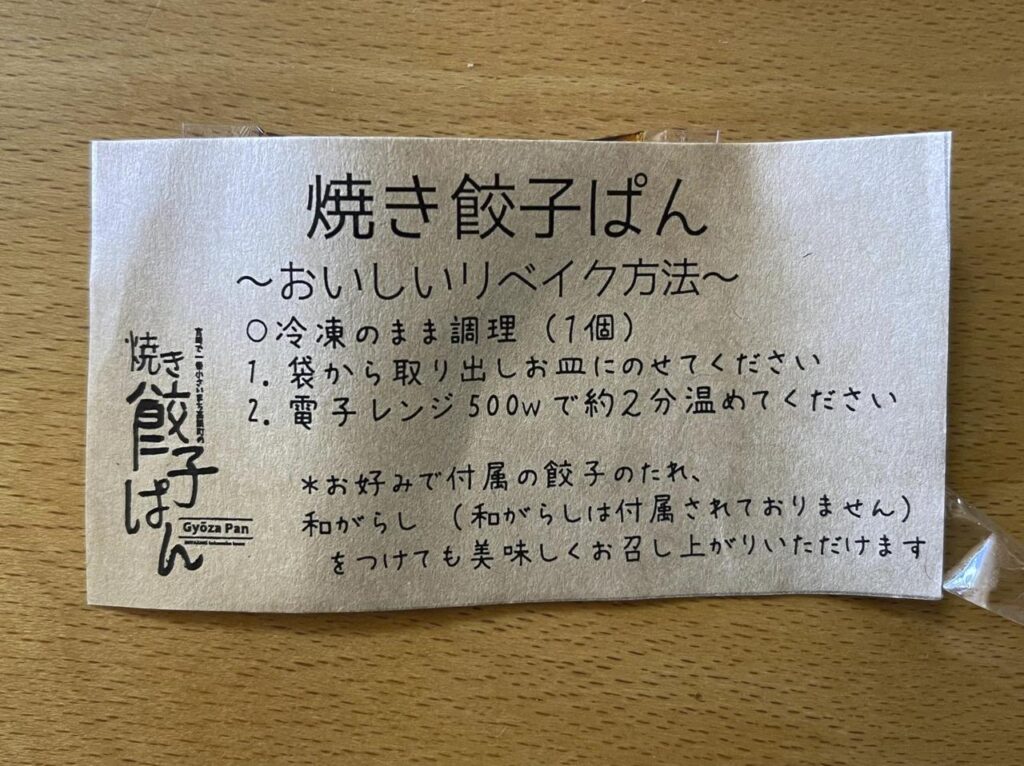 焼き餃子ぱん
～おいしいリベイク方法～
○冷凍のまま調理（1個）
1. 袋から取り出しお皿にのせてください
2. 電子レンジ500wで約2分温めてください
*お好みで付属の餃子のたれ、
和がらし（和がらしは付属されておりません）
をつけても美味しくお召し上がりいただけます
宮崎で一番小さいまち高原町の
焼き
餃子
ぱん
Gyōza Pan